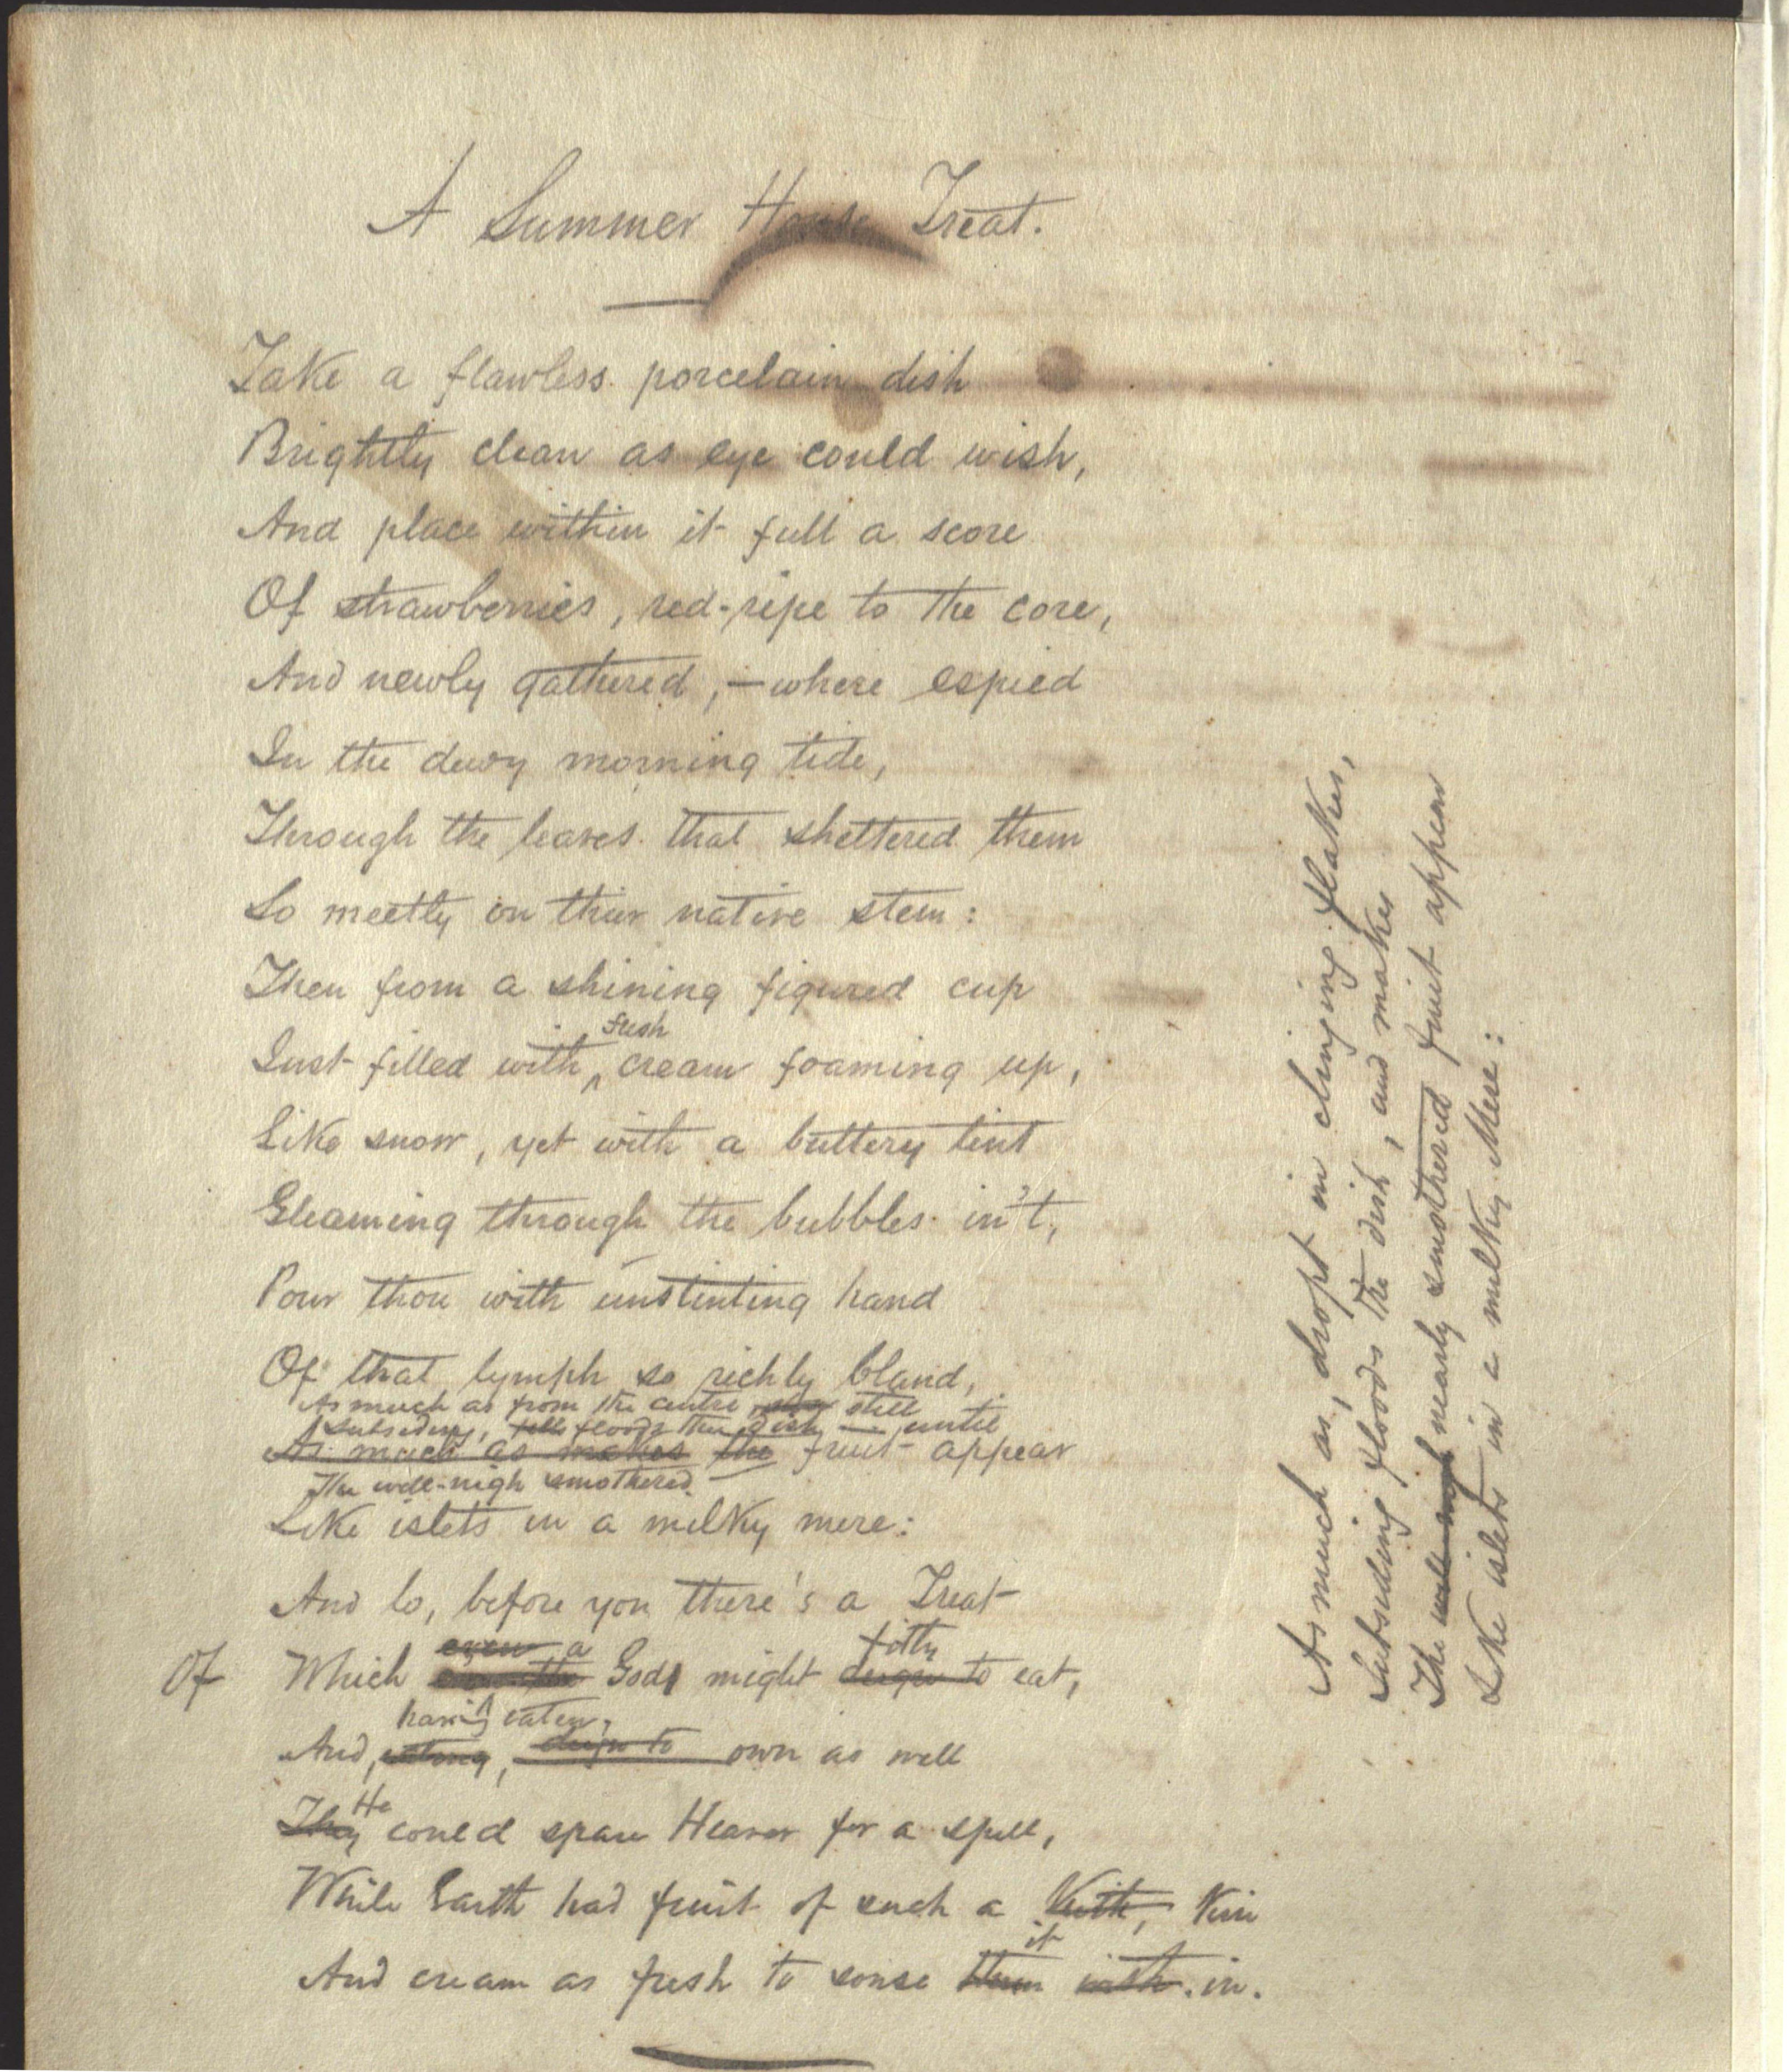 A Summer House Treat.
Take a flawless porcelain dish
Brightly clean as eye could wish,
And place within it full a score
Of strawberries, red-ripe to the core,
And newly gathered,—where espied
In the dewy morning tide,
Through the leaves that sheltered them
So meetly on their native stem:
Then from a shining figured cup
fresh
Just filled with cream foaming up,
Like snow, yet with a buttery tint
Gleaming through the bubbles in't,
Pour thou with unstinting hand
Of that lymph so richly bland,
As much as from the centre still
Subsiding, floods the dish — until
As much as makes the fruit appear
The well-nigh smothered
Like islets in a milky mere:
And lo, before you there's a Treat
even a fitly
Of Which God might deign to eat,
having eaten,
And, eating, deign to own as well
He
They could spare Heaven for a spell,
While Earth had fruit of such a Kith, Kin
it
And cream as fresh to souse them with. in.
As much as, dropt in clinging flakes,
Subsiding floods the dish, and makes
The well-nigh nearly smothered fruit appear
Like islets in a milky Mere: